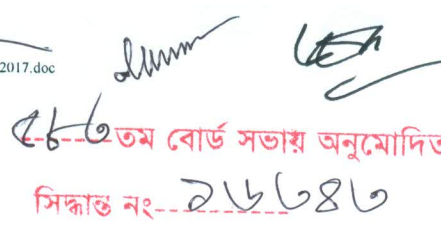 2017.doc
৫৮৩তম বোর্ড সভায় অনুমোদিত
সিদ্ধান্ত নং- ১৬৩৪৩